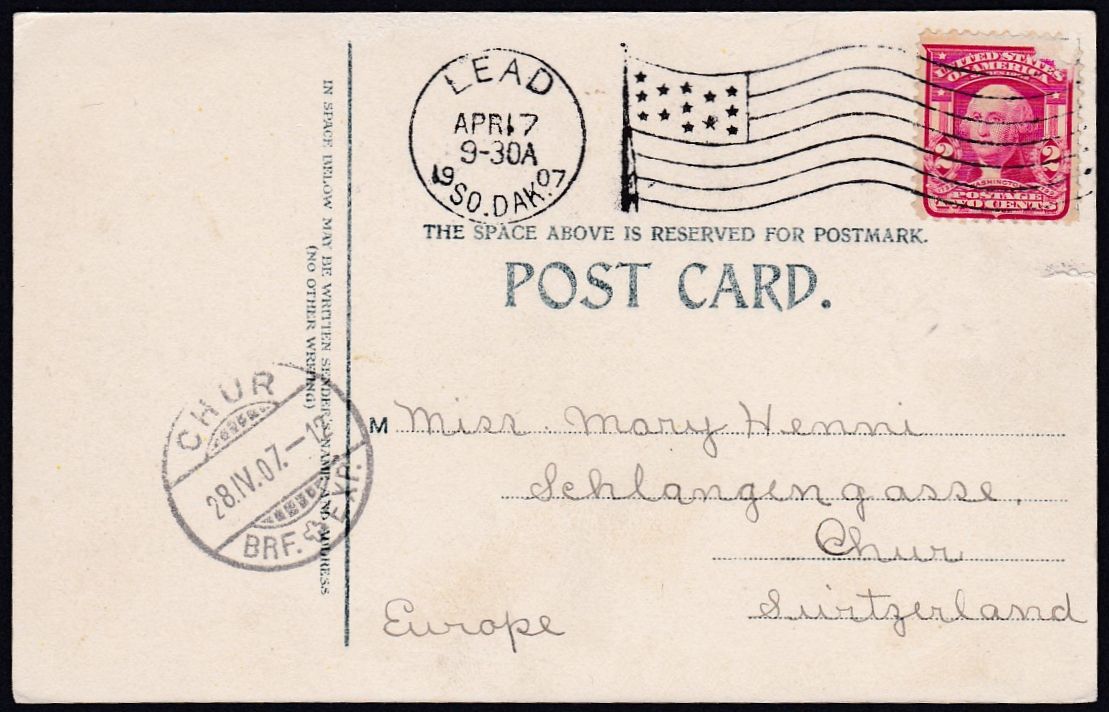 LEAD
APR 17
9-30A
1907
SO. DAK.
UNITED STATES
OF AMERICA
2 2
WASHINGTON
POSTAGE
TWO CENTS
THE SPACE ABOVE IS RESERVED FOR POSTMARK.
POST CARD.
IN SPACE BELOW MAY BE WRITTEN SENDER'S NAME AND ADDRESS
(NO OTHER WRITING)
CHUR
28.IV.07.-12
BRF. EXP.
M Miss. Mary Henni
Schlangengasse,
Chur
Suitzerland
Europe